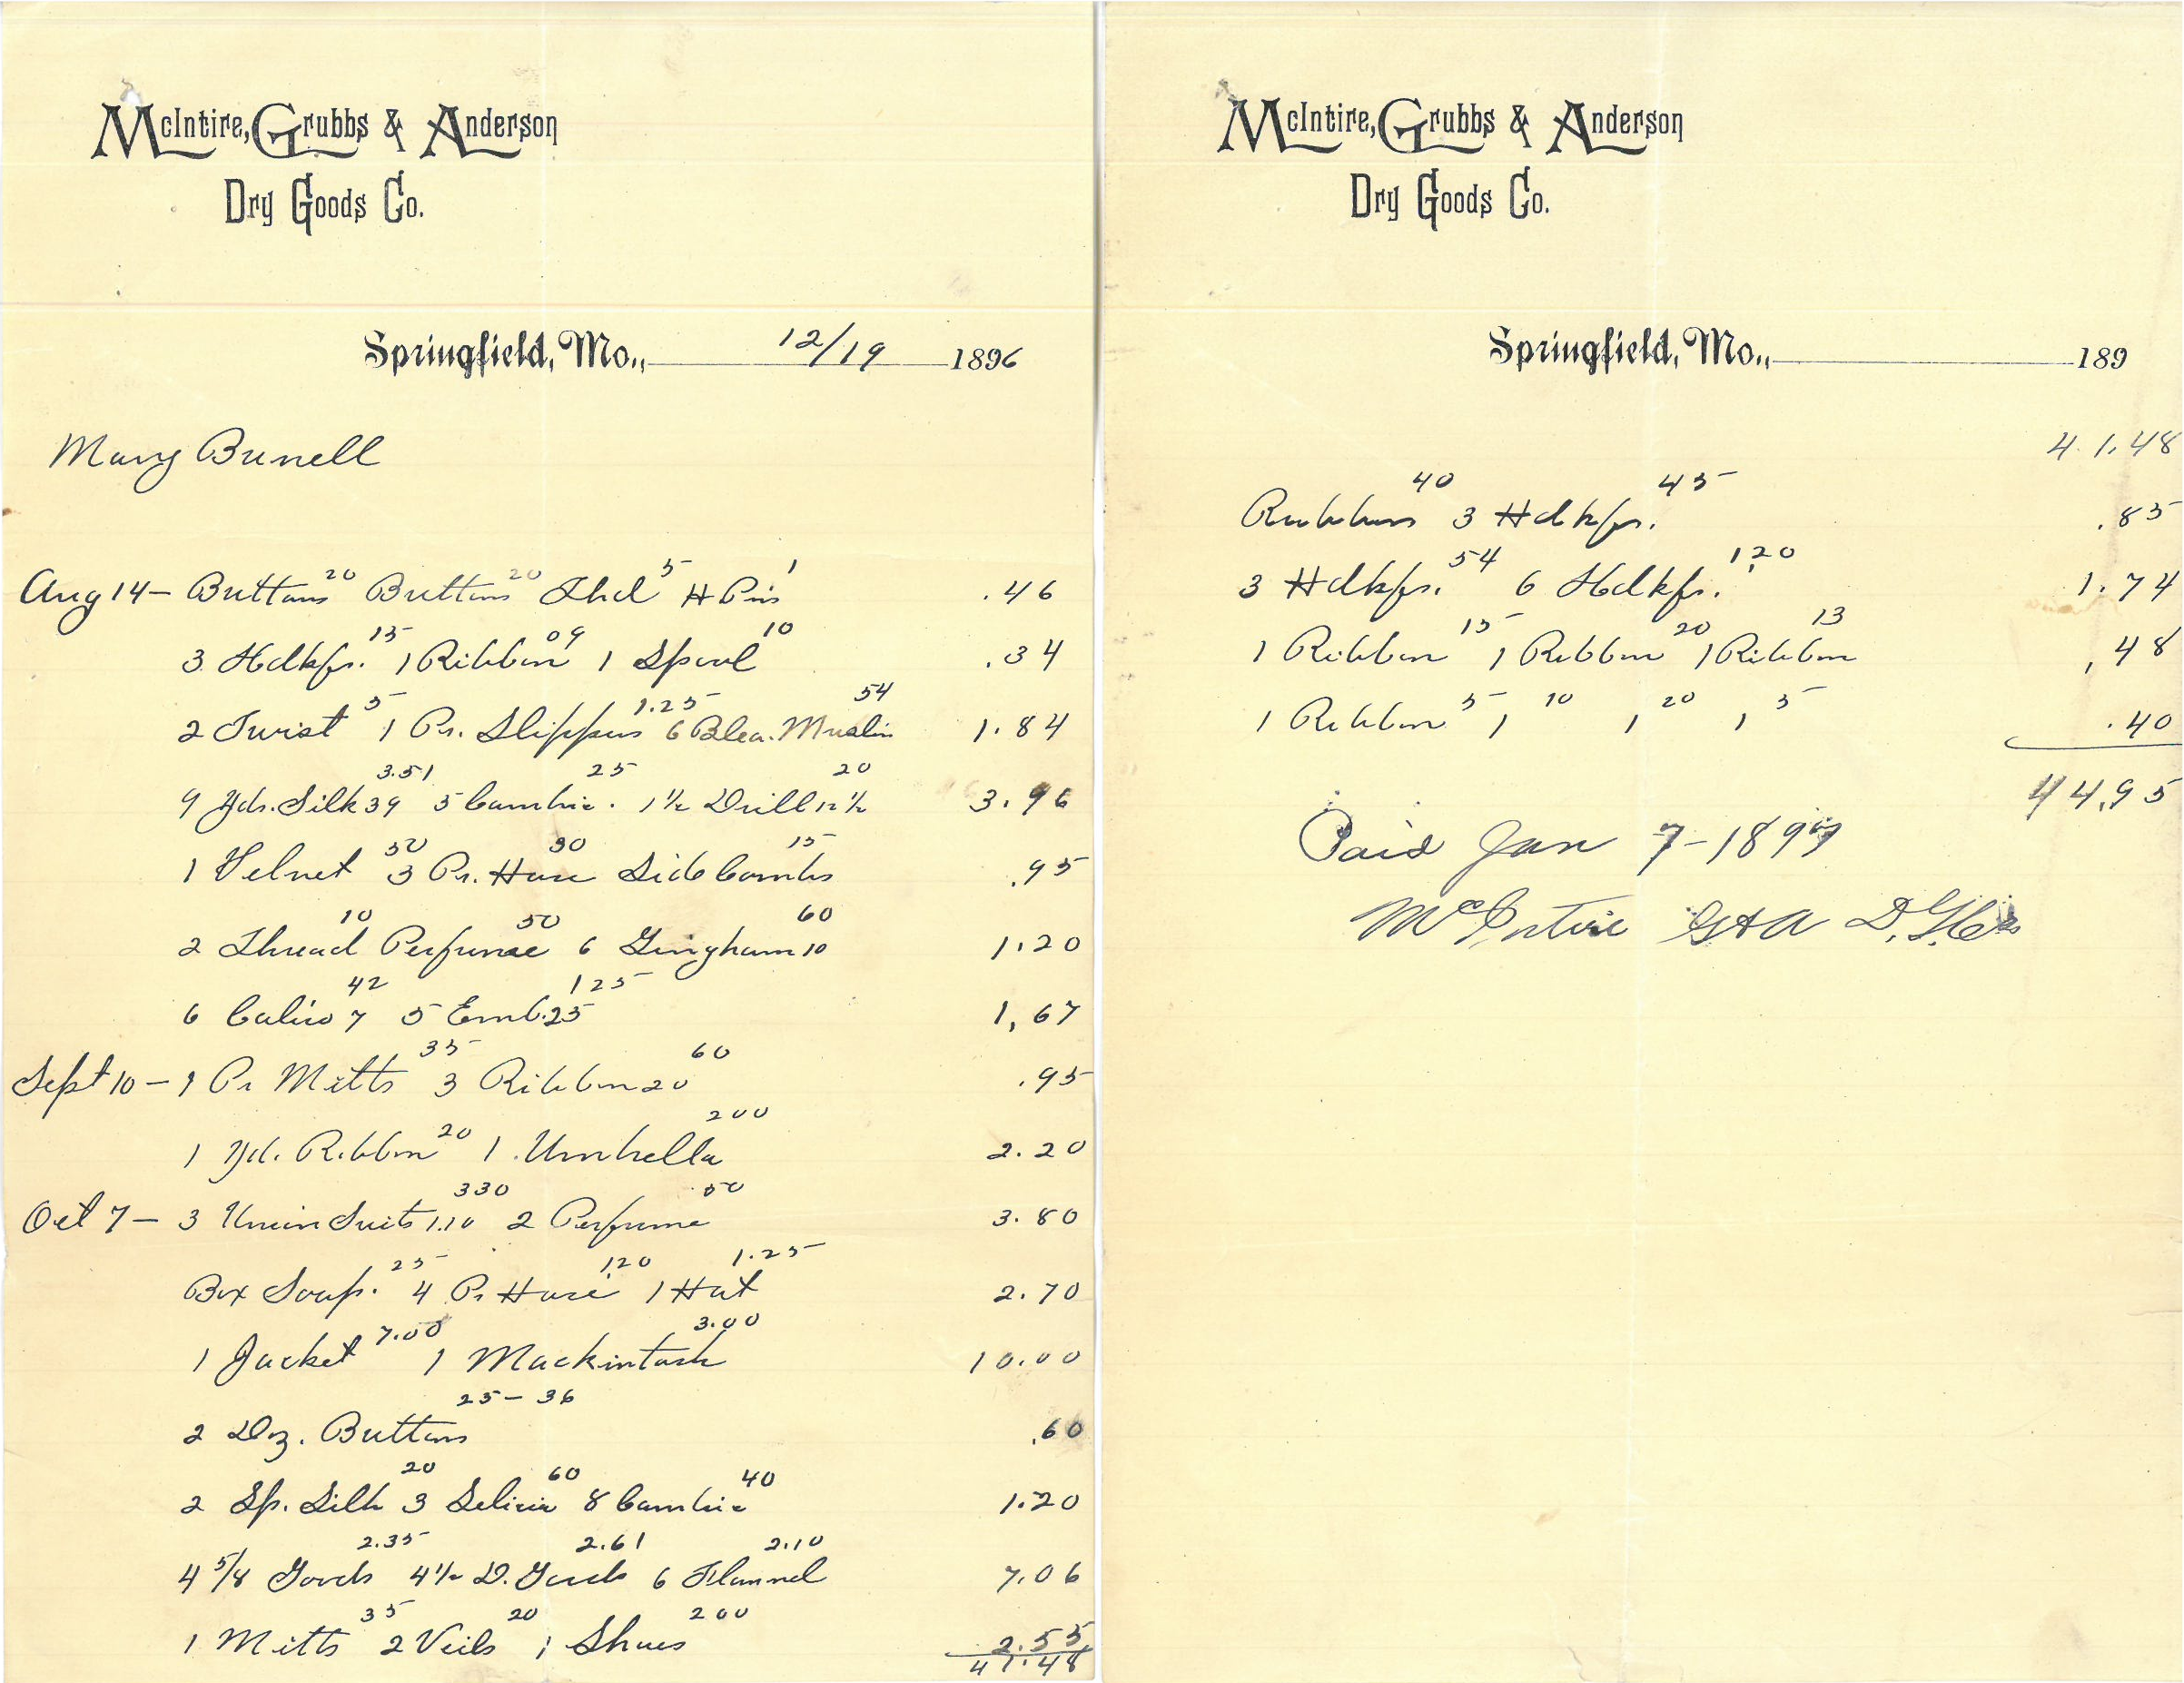 McIntire, Grubbs & Anderson
Dry Goods Co.
Springfield, Mo., 12/19 1896
Mary Bunell
20 20 5 1
Aug 14 - Buttons Buttons Thd H Pins .46
15 09 10
3 Hdkfs. 1 Ribbon 1 Spool .34
5 1.25 54
2 Twist 1 Pr. Slippers 6 Blea. Muslin 1.84
3.51 25 20
9 Yds. Silk 39 5 Cambric. 1 1/2 Drill 12 1/2 3.96
50 30 15
1 Velvet 3 Pr. Hose Side Combs .95
10 50 60
2 Thread Perfume 6 Gingham 10 1.20
42 125
6 Calico 7 5 Emb. 25 1,67
35 60
Sept 10 - 1 Pr Mitts 3 Ribbon 20 .95
20 200
1 Yd. Ribbon 1 Umbrella 2.20
330 .50
Oct 7 - 3 Union Suits 1.10 2 Perfume 3.80
25 1.20 1.25
Box Soap. 4 Pr Hose 1 Hat 2.70
7.00 3.00
1 Jacket 1 Mackintosh 10.00
25 - 36
2 Doz. Buttons .60
20 60 40
2 Sp. Silk 3 Selicia 8 Cambric 1.20
2.35 2.61 2.10
4 5/8 Goods 4 1/2 D. Goods 6 Flannel 7.06
35 20 200
1 Mitts 2 Veils 1 Shoes 2.55
41.48
McIntire, Grubbs & Anderson
Dry Goods Co.
Springfield, Mo., 189
41.48
40 45
Rubbers 3 Hdkfs. .85
54 1.20
3 Hdkfs. 6 Hdkfs. 1.74
15 20 13
1 Ribbon 1 Ribbon 1 Ribbon .48
5 10 20 5
1 Ribbon 1 1 1 .40
44.95
Paid Jan 7 - 1897
McIntire G & A D. G. Co